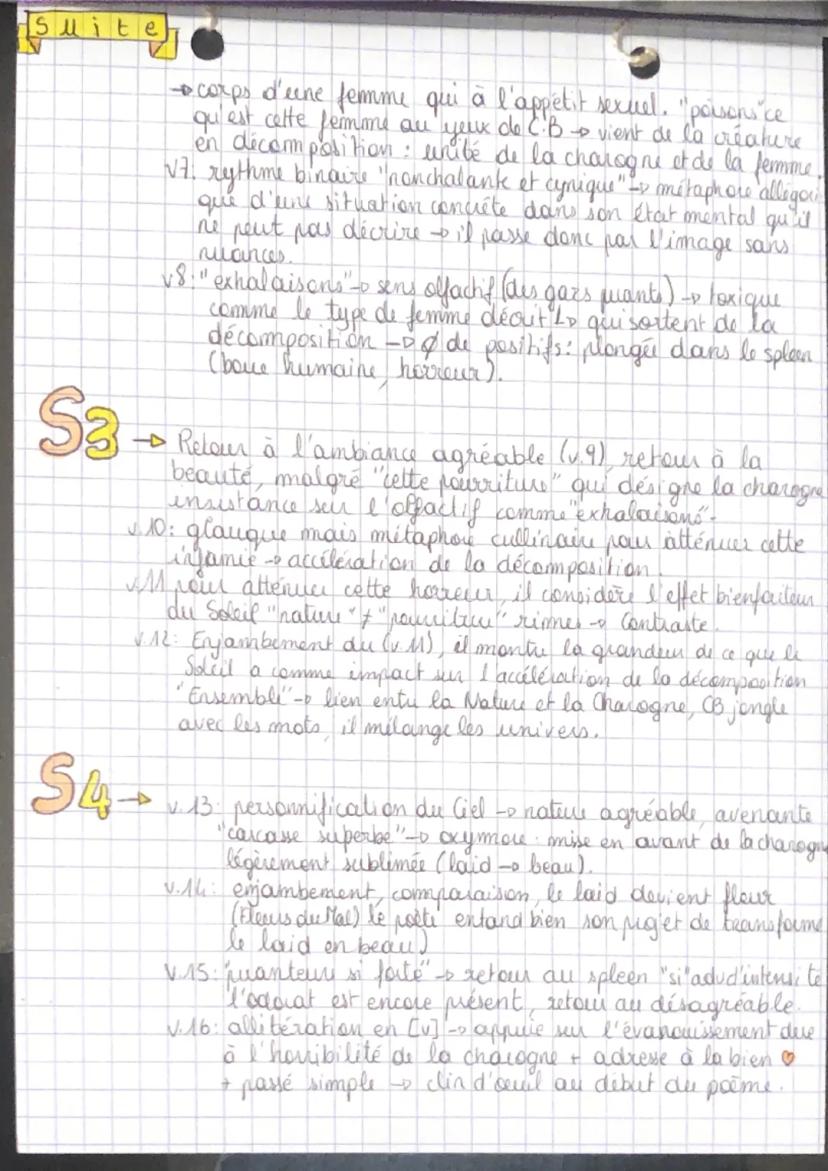 Suite
→ corps d'une femme qui à l'appétit sexuel. "poisons" ce
qu'est cette femme au yeux de C.B → vient de la créature
en décomposition : unité de la charogne et de la femme.
v7: rythme binaire "nonchalante et cynique" → métaphore allégori
que d'une situation concrète dans son état mental qu'il
ne peut pas décrire → il passe donc par l'image sans
nuances.
v8: "exhalaisons" → sens olfactif (des gazs puants) → toxique
comme le type de femme décrit ↳ qui sortent de la
décomposition → ∅ de positifs : plongée dans le spleen
(boue humaine, horreur).
S3 → Retour à l'ambiance agréable (v.9), retour à la
beauté, malgré "cette pourriture" qui désigne la charogne
insistance sur l'olfactif comme "exhalaisons".
v.10: glauque mais métaphore cullinaire pour atténuer cette
infamie → accélération de la décomposition.
v.11 pour atténuer cette horreur, il considère l'effet bienfaiteur
du Soleil "nature" ≠ "pourriture" rimes → Contraste.
v.12: Enjambement du (v.11), il montre la grandeur de ce que le
Soleil a comme impact sur l'accélération de la décomposition
"Ensemble" → lien entre la Nature et la Charogne, CB jongle
avec les mots, il mélange les univers.
S4 → v.13: personnification du Ciel → nature agréable, avenante
"carcasse superbe" → oxymore : mise en avant de la charogne
légèrement sublimée (laid → beau).
v.14: enjambement, comparaison, le laid devient fleur
(Fleurs du Mal) le poète entand bien son projet de transforme
le laid en beau)
v.15: "puanteur si forte" → retour au spleen "si" adv d'intensité
l'odorat est encore présent, retour au désagréable.
v.16: allitération en [v] → appuie sur l'évanouissement due
à l'horribilité de la charogne + adresse à la bien ♡
+ passé simple → clin d'œuil au début du poème.